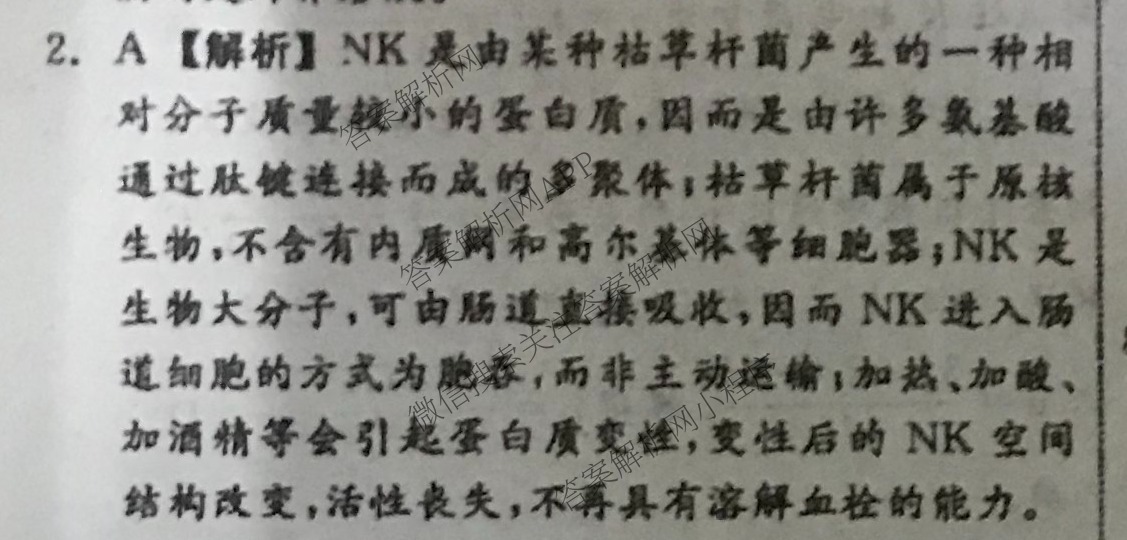 2. A 【解析】 NK 是由某种枯草杆菌产生的一种相
对分子质量较小的蛋白质，因而是由许多氨基酸
通过肽键连接而成的多聚体；枯草杆菌属于原核
生物，不含有内质网和高尔基体等细胞器；NK 是
生物大分子，可由肠道直接吸收，因而 NK 进入肠
道细胞的方式为胞吞，而非主动运输；加热、加酸、
加酒精等会引起蛋白质变性，变性后的 NK 空间
结构改变，活性丧失，不再具有溶解血栓的能力。
答案解析网
答案解析网APP
微信搜索关注:答案解析网
答案解析网小程